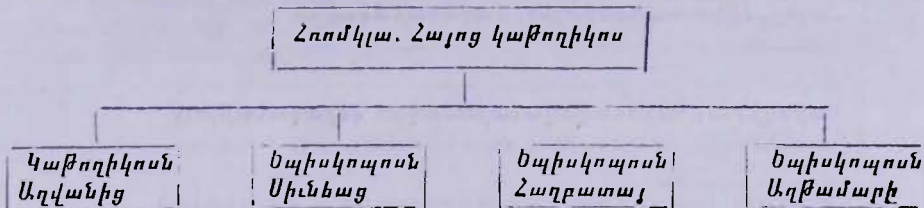 Հռոմկլա. Հայոց կաթողիկոս
Կաթողիկոսն
Աղվանից
Եպիսկոպոսն
Սիւնեաց
Եպիսկոպոսն
Հաղբատայ
Եպիսկոպոսն
Աղթամարի